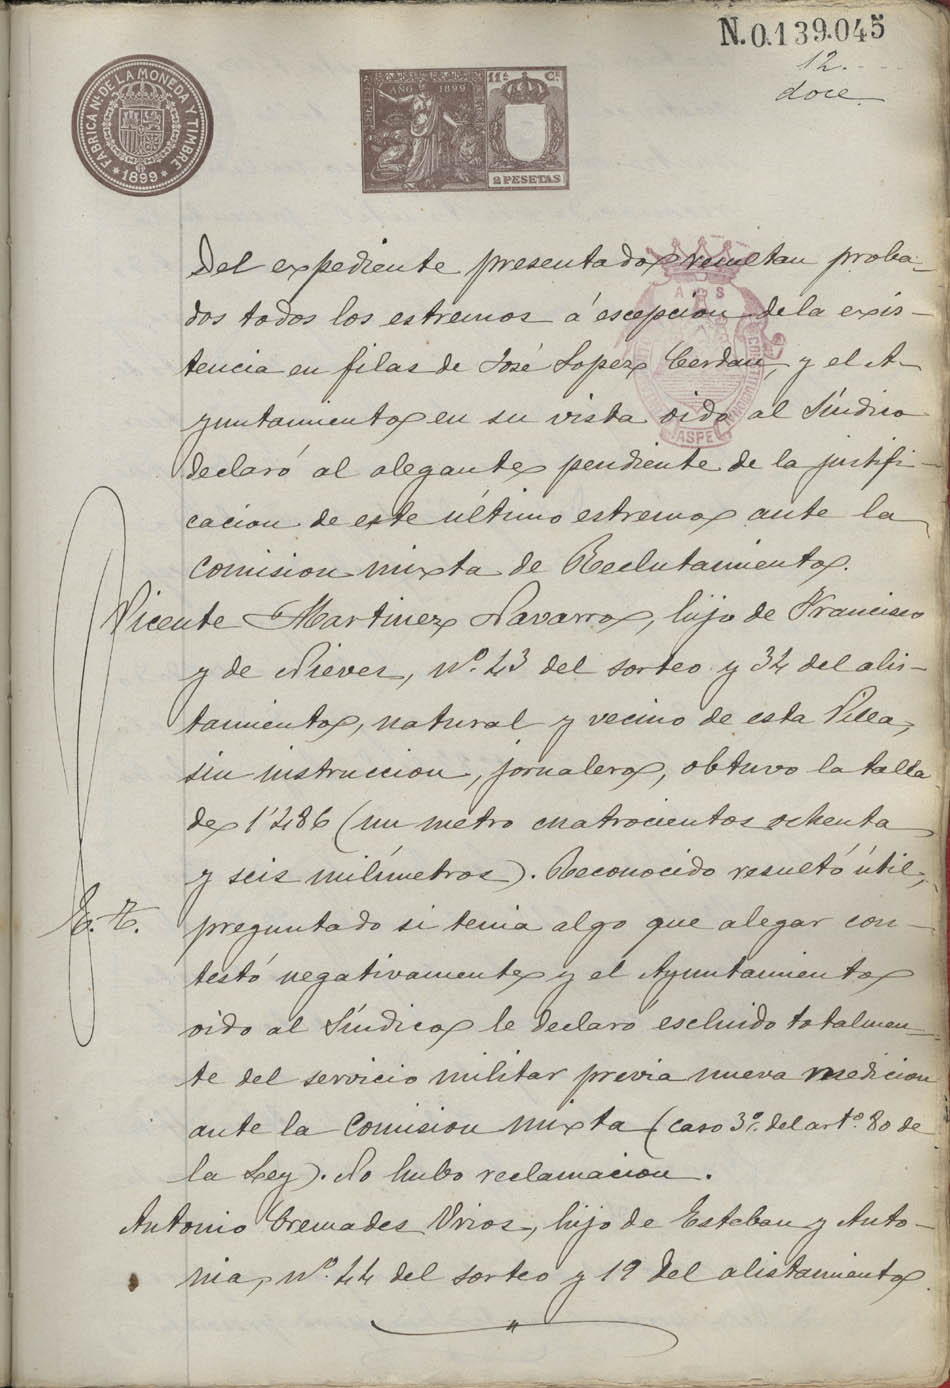 N.0.139.045
12.
doce
FABRICA Nal. DE LA MONEDA Y TIMBRE
* 1899 *
AÑO 1899
11ª Cl.
2 PESETAS
A S
ASPE
Del expediente presentado resultan proba-
dos todos los estremos á escepcion de la exis-
tencia en filas de José Lopez Cerdan, y el A-
yuntamiento en su vista oido al Síndico
declaró al alegante pendiente de la justifi-
cacion de este último estremo ante la
Comision mixta de Reclutamiento.
Vicente Martinez Navarro, hijo de Francisco
y de Nieves, nº. 43 del sorteo y 34 del alis-
tamiento, natural y vecino de esta Villa,
sin instruccion, jornalero, obtuvo la talla
de 1'486 (un metro cuatrocientos ochenta
y seis milímetros). Reconocido resultó útil,
E. T.
preguntado si tenia algo que alegar con-
testó negativamente y el Ayuntamiento
oido al Síndico le declaró escluido totalmen-
te del servicio militar previa nueva medicion
ante la Comision mixta (caso 3º. del artº. 80 de
la Ley). No hubo reclamacion.
Antonio Cremades Urios, hijo de Esteban y Anto-
nia, nº. 44 del sorteo y 19 del alistamiento